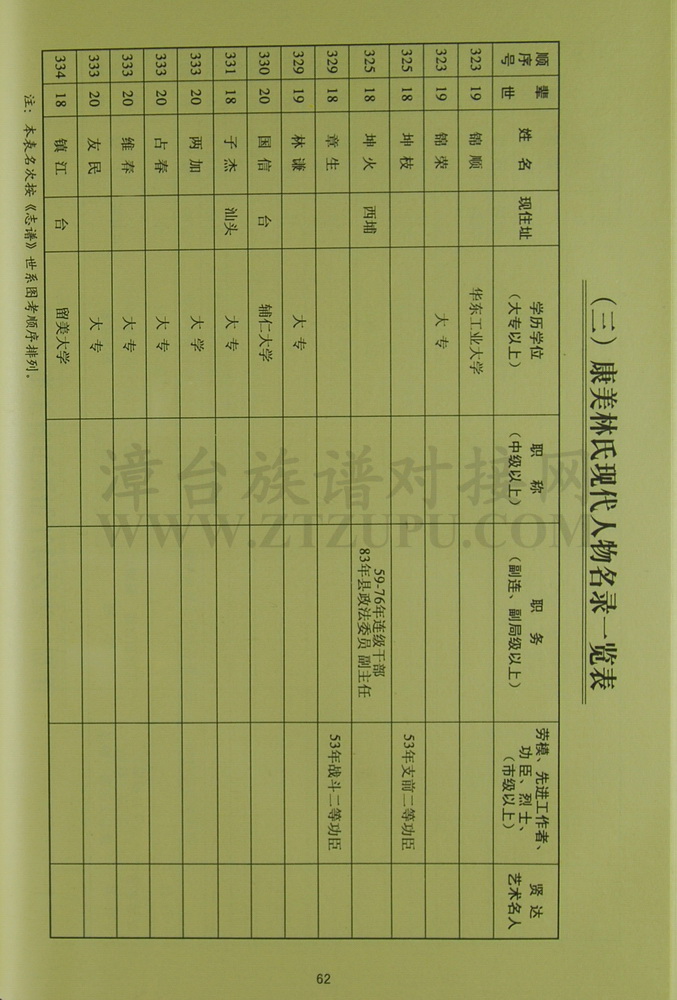 (三)康美林氏现代人物名录一览表
顺序号 辈世 姓名 现住址 学历学位(大专以上) 职称(中级以上) 职务(副连、副局级以上) 劳模、先进工作者、功臣、烈士、(市级以上) 贤达艺术名人
323 19 锦顺 华东工业大学
323 19 锦荣 大专
325 18 坤枝 53年支前二等功臣
325 18 坤火 西埔 59-76年连级干部 83年县政法委员 副主任
329 18 章生 53年战斗二等功臣
329 19 林谦 大专
330 20 国信 台 辅仁大学
331 18 子杰 汕头 大专
333 20 两加 大学
333 20 占春 大专
333 20 维春 大专
333 20 友民 大专
334 18 镇江 台 留美大学
注:本表名次按《志谱》世系图考顺序排列。
62
漳台族谱对接网
WWW.ZTZUPU.COM